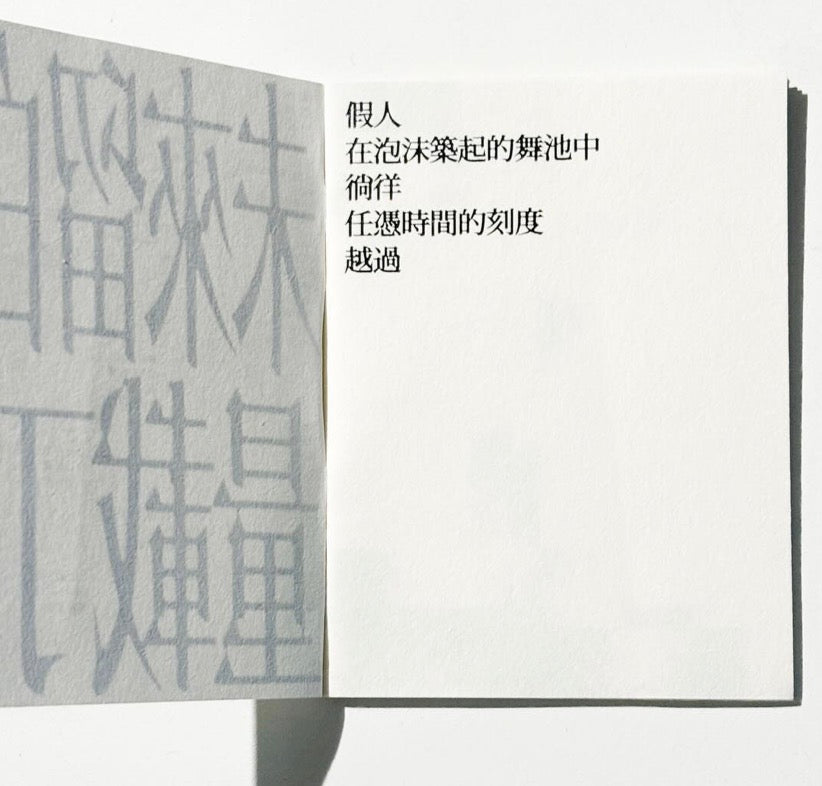 未來留白
量載了
假人
在泡沫築起的舞池中
徜徉
任憑時間的刻度
越過